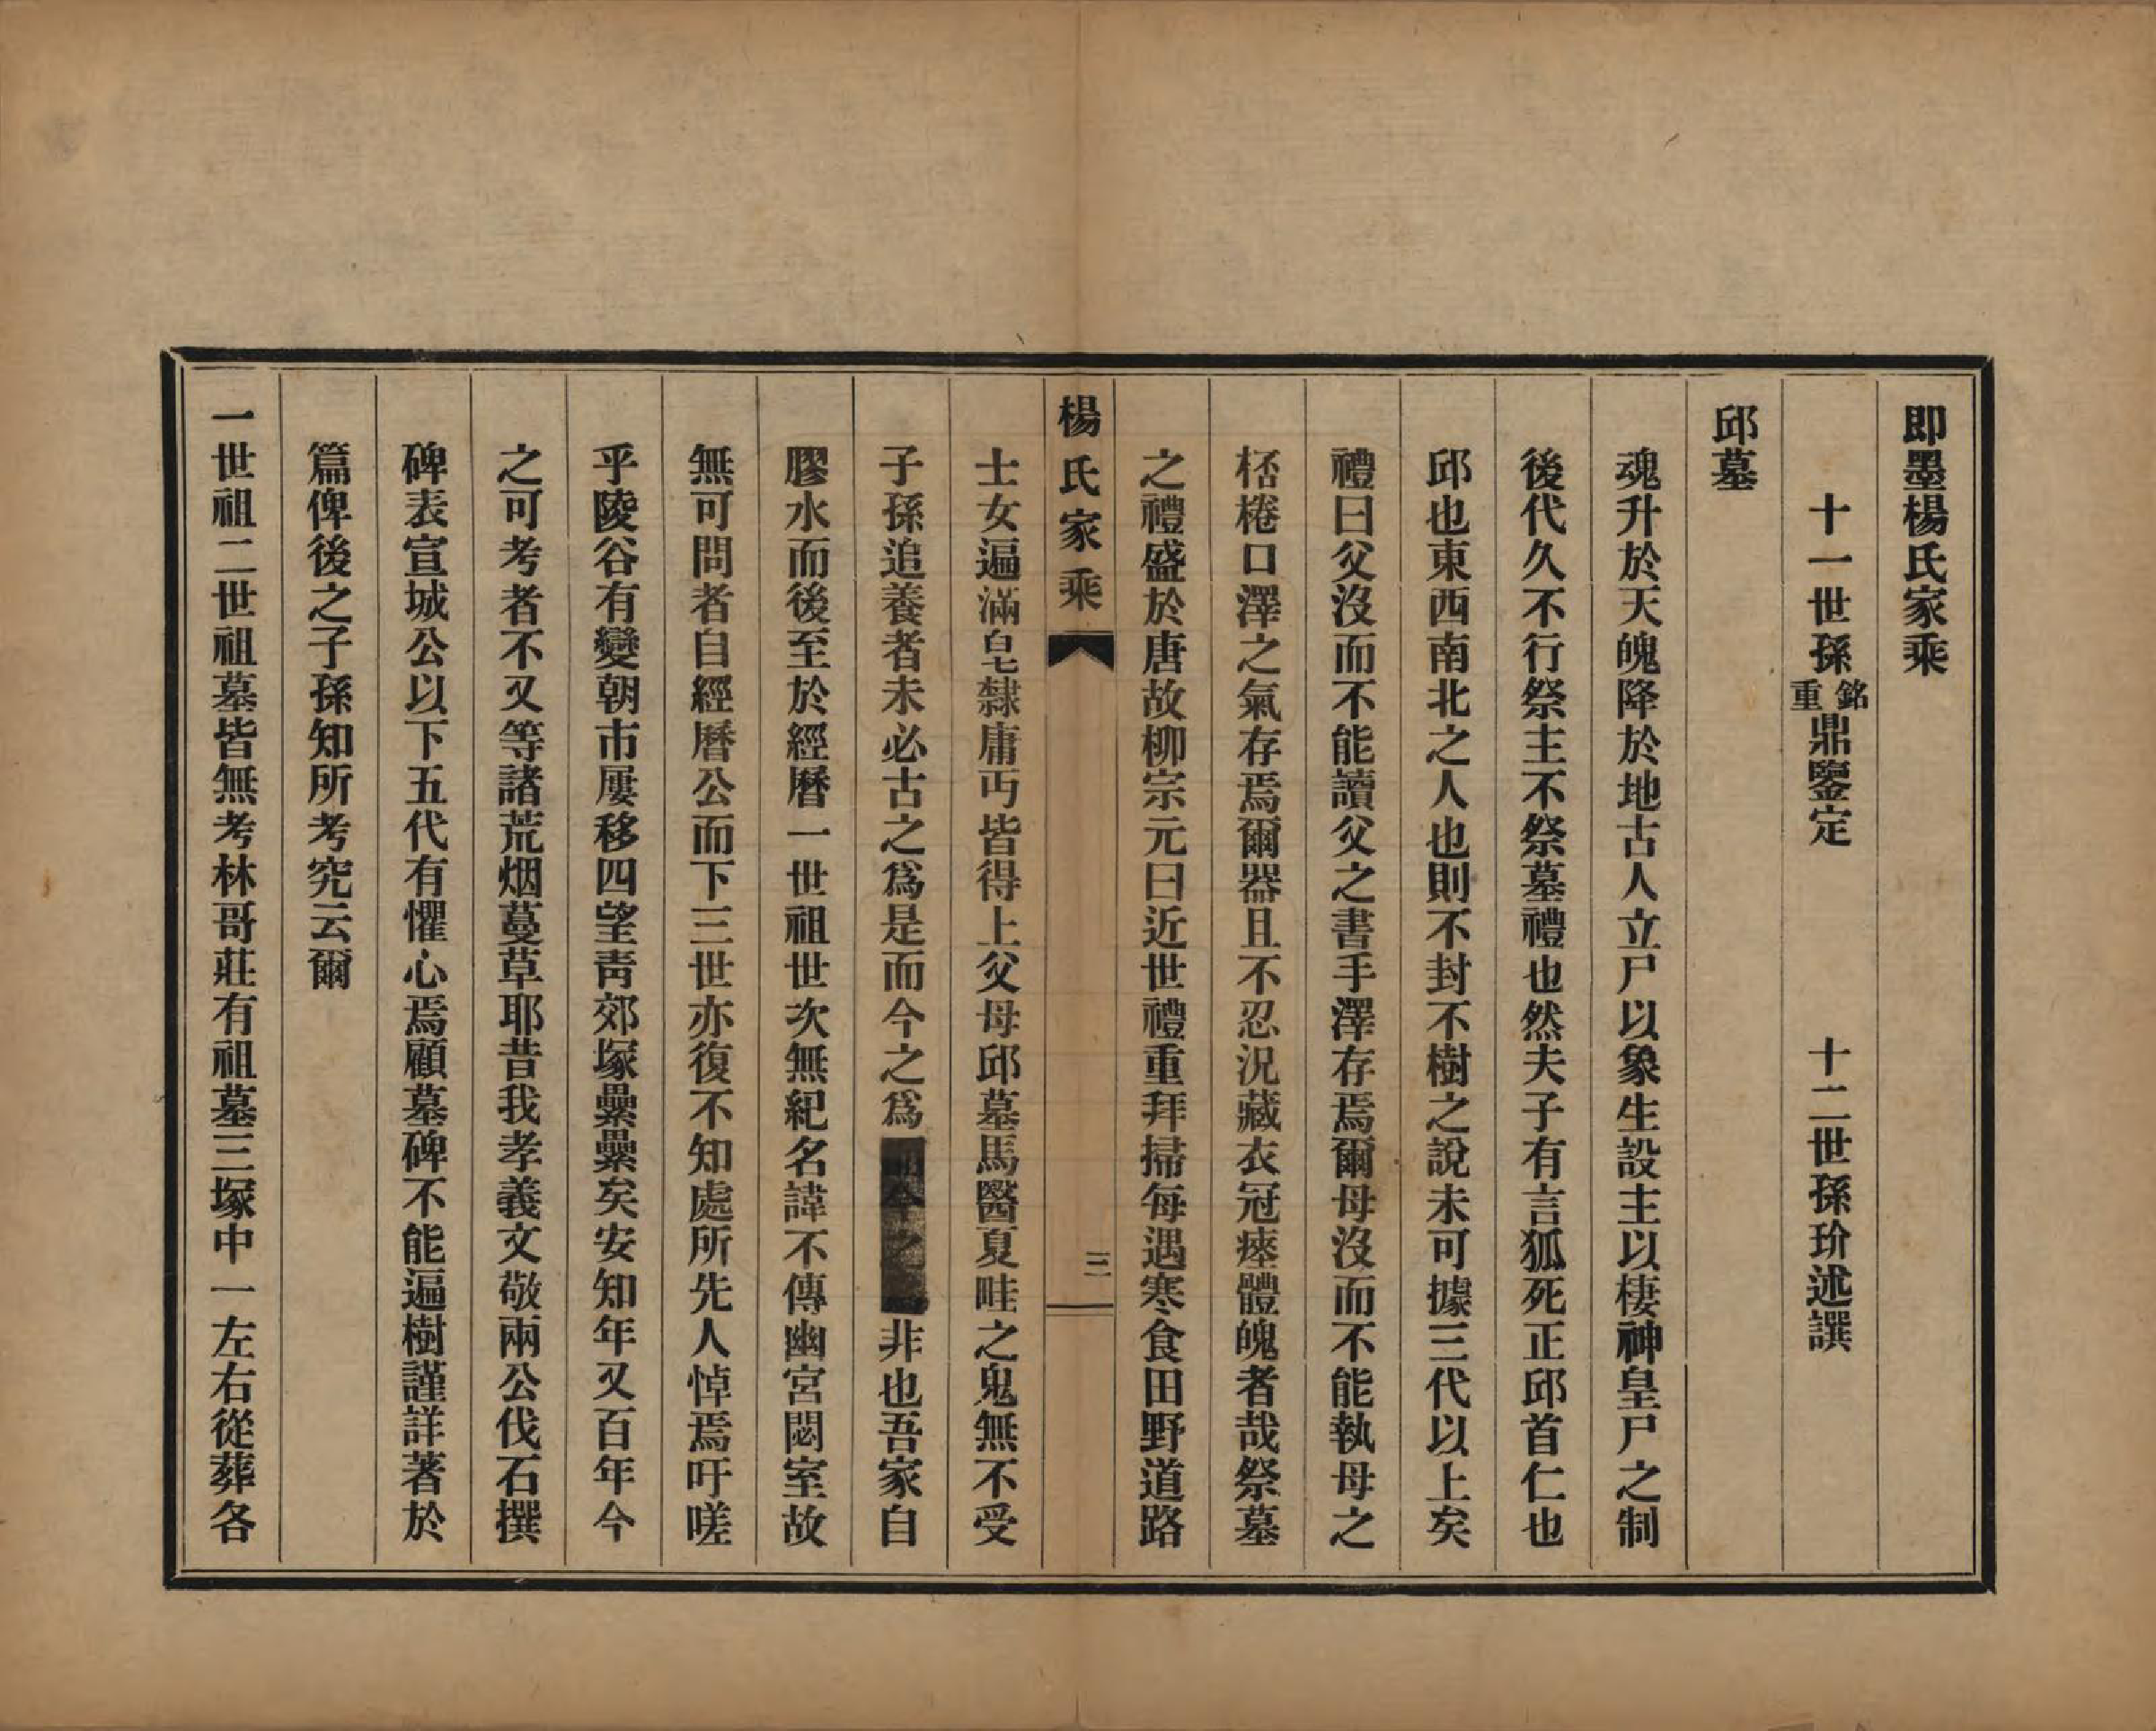 即墨楊氏家乘
十一世孫銘重鼎鑒定 十二世孫玠述譔
邱墓
魂升於天魄降於地古人立尸以象生設主以棲神皇尸之制
後代久不行祭主不祭墓禮也然夫子有言狐死正邱首仁也
邱也東西南北之人也則不封不樹之說未可據三代以上矣
禮曰父沒而不能讀父之書手澤存焉爾母沒而不能執母之
桮棬口澤之氣存焉爾器且不忍況藏衣冠瘞體魄者哉祭墓
之禮盛於唐故柳宗元曰近世禮重拜掃每遇寒食田野道路
楊氏家乘 三
士女遍滿皁隸庸丐皆得上父母邱墓馬醫夏畦之鬼無不受
子孫追養者未必古之爲是而今之爲非也吾家自
膠水而後至於經曆一世祖世次無紀名諱不傳幽宮閟室故
無可問者自經曆公而下三世亦復不知處所先人悼焉吁嗟
乎陵谷有變朝市屢移四望靑郊塚纍纍矣安知年又百年今
之可考者不又等諸荒烟蔓草耶昔我孝義文敬兩公伐石撰
碑表宣城公以下五代有懼心焉顧墓碑不能遍樹謹詳著於
篇俾後之子孫知所考究云爾
一世祖二世祖墓皆無考林哥莊有祖墓三塚中一左右從葬各